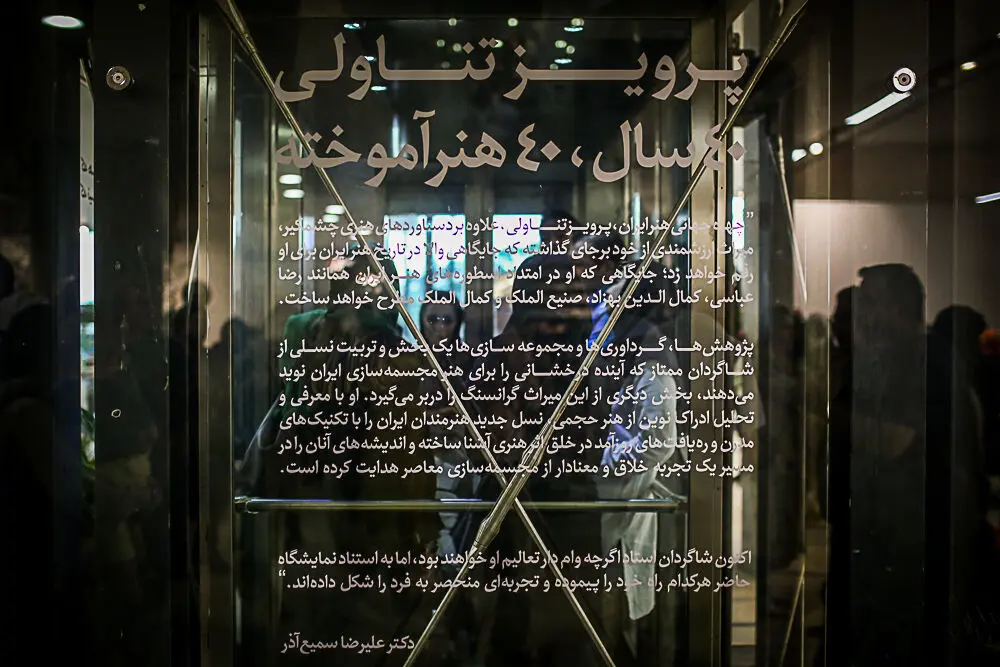 پرویز تناولی
۴۰ سال، ۴۰ هنرآموخته
"چهره جهانی هنر ایران، پرویز تناولی، علاوه بر دستاوردهای هنری چشمگیر،
میراث ارزشمندی از خود برجای گذاشته که جایگاهی والا در تاریخ هنر ایران برای او
رقم خواهد زد؛ جایگاهی که او در امتداد اسطوره‌های هنر ایران همانند رضا
عباسی، کمال الدین بهزاد، صنیع الملک و کمال الملک مطرح خواهد ساخت.
پژوهش‌ها، گردآوری‌ها و مجموعه سازی‌ها یک بخش و تربیت نسلی از
شاگردان ممتاز که آینده درخشانی را برای هنر مجسمه‌سازی ایران نوید
می‌دهند، بخش دیگری از این میراث گرانسنگ را دربر می‌گیرد. او با معرفی و
تحلیل ادراک نوین از هنر حجمی، نسل جدید هنرمندان ایران را با تکنیک‌های
مدرن و رهیافت‌های روزآمد در خلق اثر هنری آشنا ساخته و اندیشه‌های آنان را در
مسیر یک تجربه خلاق و معنادار از مجسمه‌سازی معاصر هدایت کرده است.
اکنون شاگردان استاد اگرچه وام دار تعالیم او خواهند بود، اما به استناد نمایشگاه
حاضر هرکدام راه خود را پیموده و تجربه‌ای منحصر به فرد را شکل داده‌اند."
دکتر علیرضا سمیع‌آذر